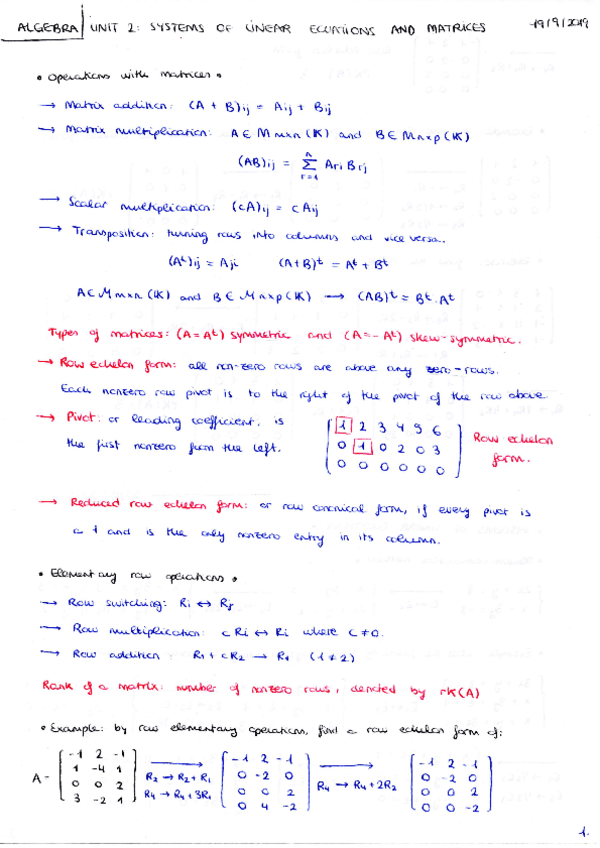 ALGEBRA UNIT 2: SYSTEMS OF LINEAR EQUATIONS AND MATRICES 19/9/2019
• Operations with matrices •
→ Matrix addition: (A + B)ij = Aij + Bij
→ Matrix multiplication: A ∈ Mmxn (K) and B ∈ Mnxp (K)
(AB)ij = Σ Ari Brj
n
r=1
→ Scalar multiplication: (cA)ij = c Aij
→ Transposition: turning rows into columns and vice versa.
(Aᵗ)ij = Aji (A+B)ᵗ = Aᵗ + Bᵗ
A ∈ Mmxn (K) and B ∈ Mnxp (K) → (AB)ᵗ = Bᵗ. Aᵗ
Types of matrices: (A = Aᵗ) symmetric and (A = - Aᵗ) skew-symmetric.
→ Row echelon form: all non-zero rows are above any zero-rows.
Each nonzero row pivot is to the right of the pivot of the row above
→ Pivot: or leading coefficient, is
the first nonzero from the left.
1 2 3 4 5 6
0 1 0 2 0 3
0 0 0 0 0 0
Row echelon
form.
→ Reduced row echelon form: or row canonical form, if every pivot is
a 1 and is the only nonzero entry in its column.
• Elementary row operations •
→ Row switching: Ri ↔ Rj
→ Row multiplication: c Ri ↔ Ri where c ≠ 0.
→ Row addition: R1 + cR2 → R1 (1 ≠ 2)
Rank of a matrix: number of nonzero rows, denoted by rK(A)
• Example: by row elementary operations, find a row echelon form of:
A =
-1 2 -1
1 -4 1
0 0 2
3 -2 1
R2 → R2 + R1
R4 → R4 + 3R1
-1 2 -1
0 -2 0
0 0 2
0 4 -2
R4 → R4 + 2R2
-1 2 -1
0 -2 0
0 0 2
0 0 -2
1.